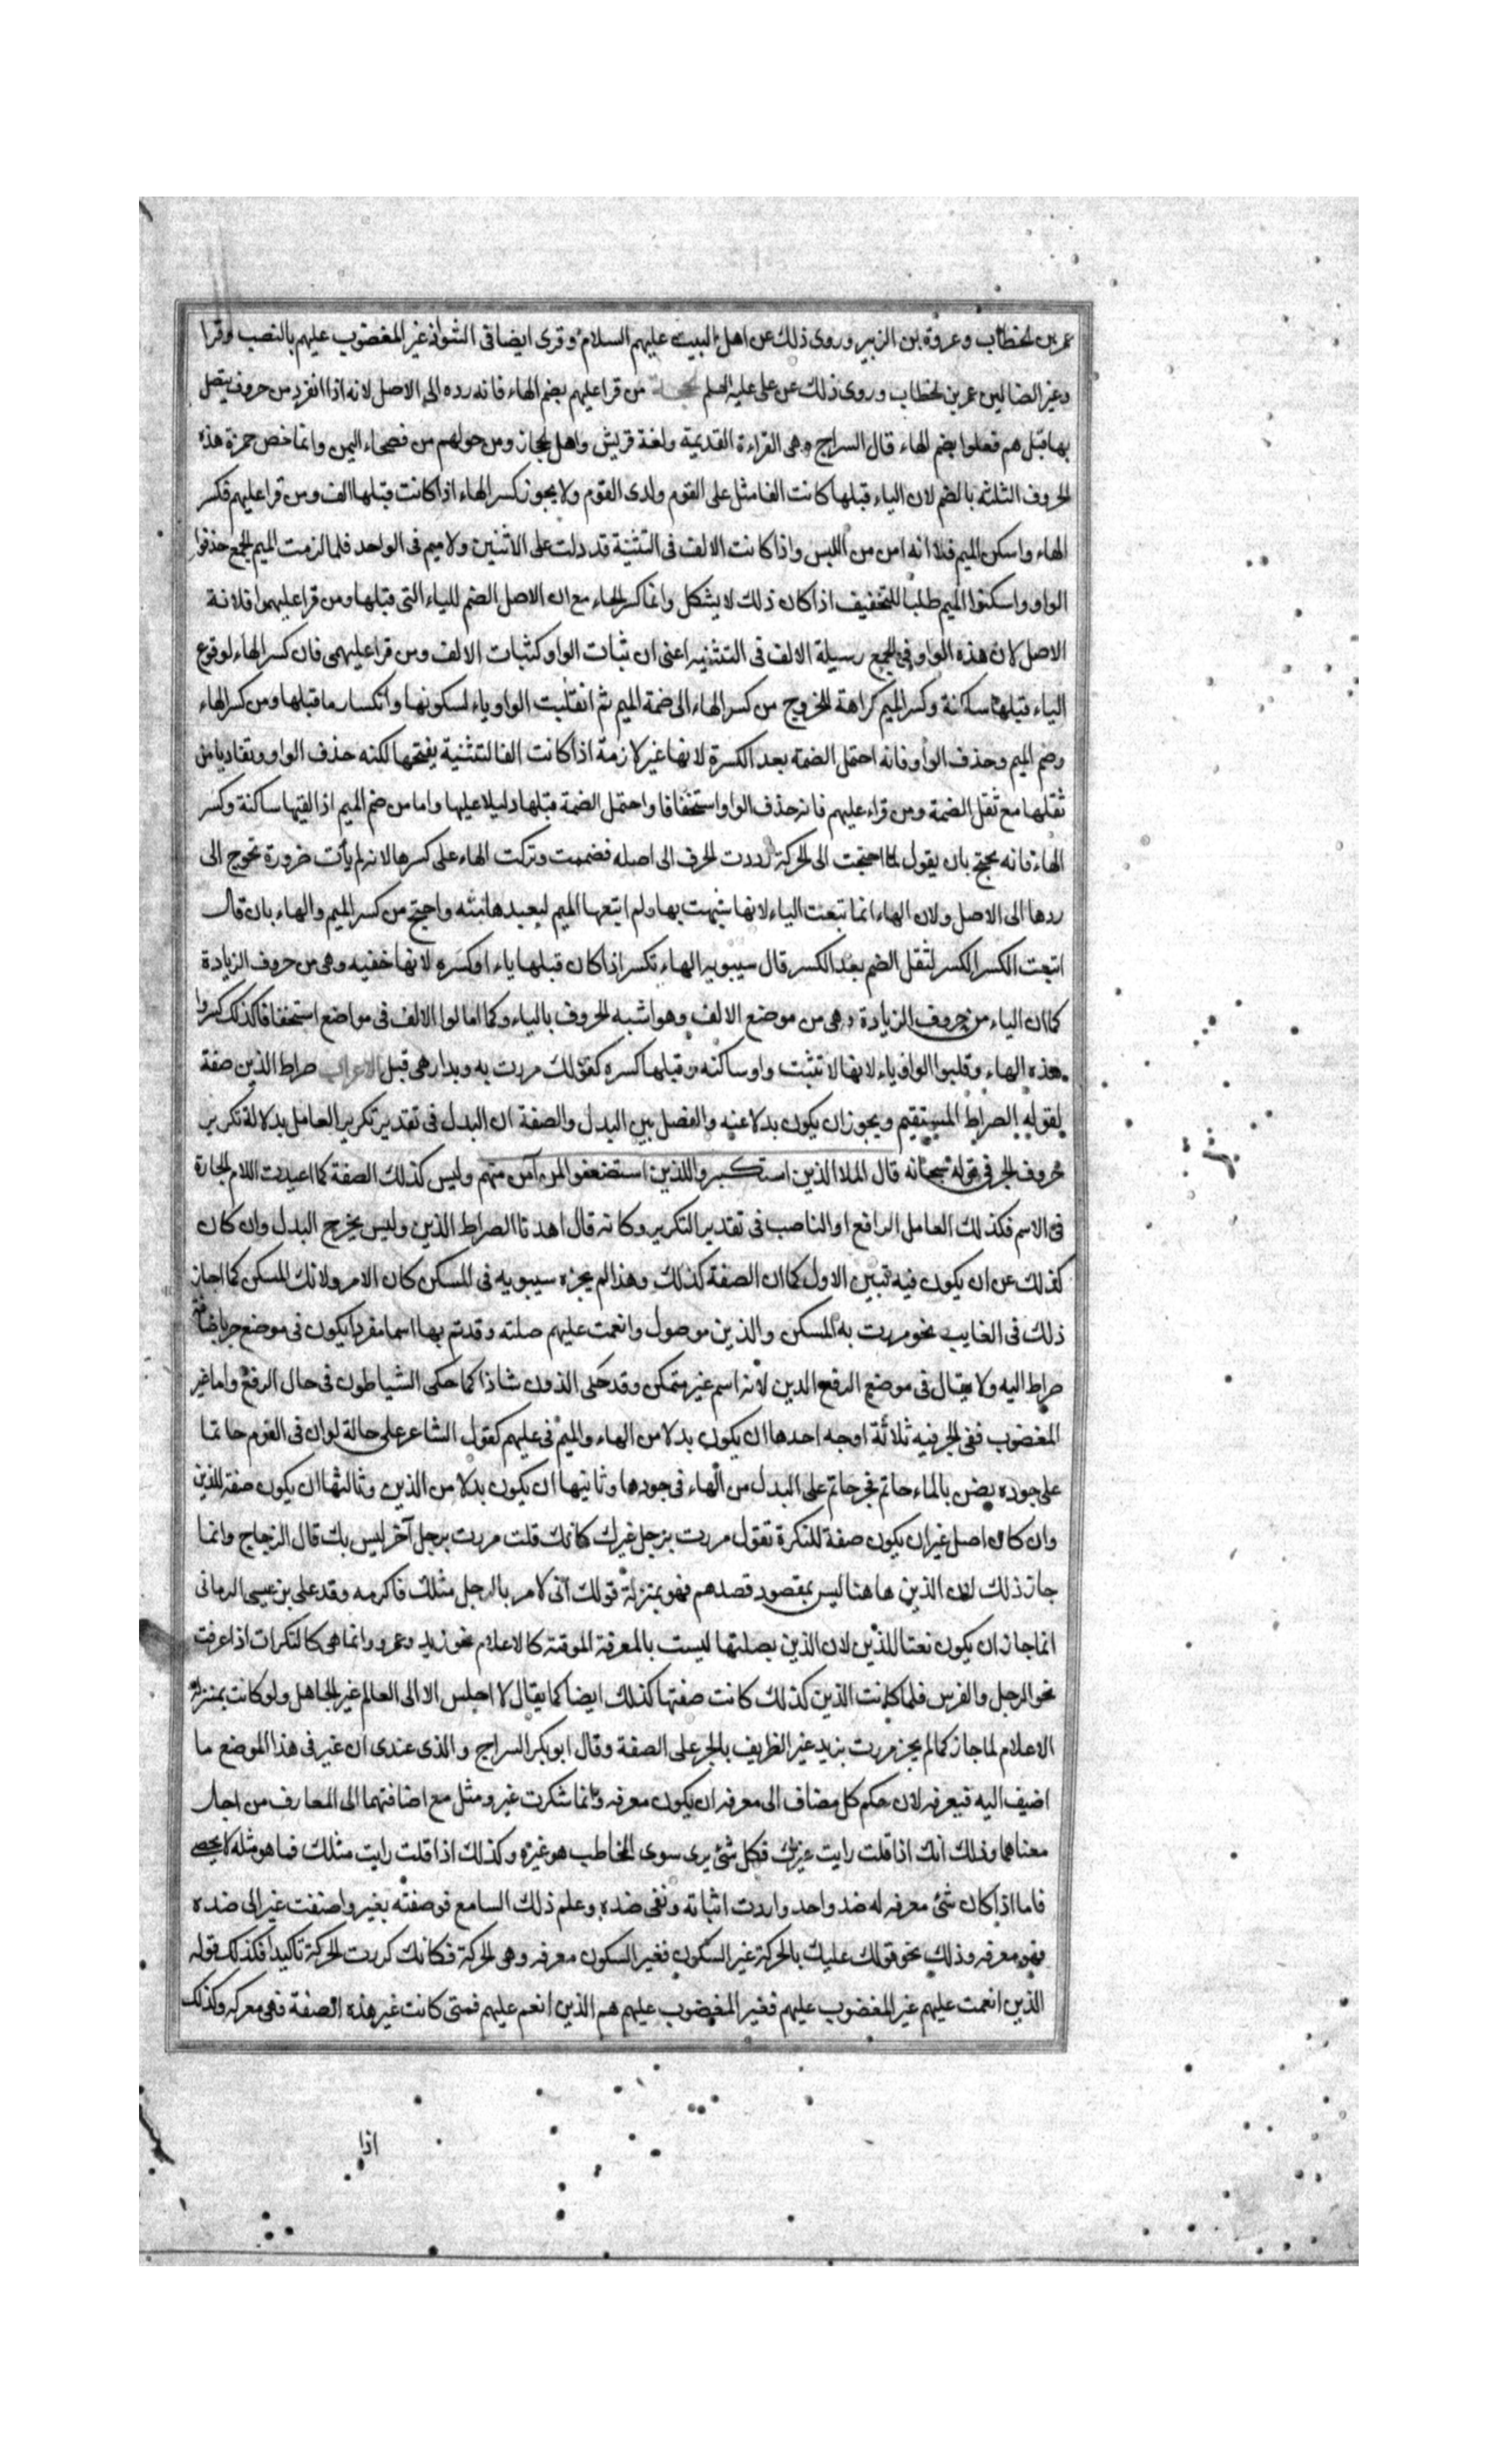 عمر بن الخطاب وعروة بن الزبير وروى ذلك عن اهل البيت عليهم السلام وقرى ايضا فى الشواذ غير المغضوب عليهم بالنصب وقرا
وغير الضالين عمر بن الخطاب وروى ذلك عن على عليه السلم من قرا عليهم بضم الهاء فانه رده الى الاصل لانه اذا انفرد من حروف يتصل
بها قيل هم فعلوا بضم الهاء قال السراج وهى القراءة القديمة ولغة قريش واهل الحجاز ومن حولهم من فصحاء اليمن وانما خص حمزة هذه
الحروف الثلثة بالضم لان الياء قبلها كانت الفا مثل على القوم ولدى القوم ولا يجوز كسر الهاء اذا كانت قبلها الف ومن قرا عليهم فكسر
الهاء واسكن الميم فلا انه امن من اللبس واذا كانت الالف فى التثنية قد دلت على الاثنين ولا ميم فى الواحد فلما لزمت الميم الجمع حذفوا
الواو واسكنوا الميم طلبا للتخفيف اذا كان ذلك لا يشكل وانما كسر الهاء مع ان الاصل الضم للياء التى قبلها ومن قرا عليهموا فلانة
الاصل لان هذه الواو فى الجمع رسيلة الالف فى التثنيه اعنى ان ثبات الواو كثبات الالف ومن قرا عليهمى فان كسر الهاء لوقوع
الياء قبلها ساكنة وكسر الميم كراهة للخروج من كسر الهاء الى ضمة الميم ثم انقلبت الواو ياء لسكونها وانكسار ما قبلها ومن كسر الهاء
وضم الميم وحذف الواو فانه احتمل الضمة بعد الكسرة لانها غير لازمة اذا كانت الف التثنية يفتحها لكنه حذف الواو وتفاديا من
ثقلها مع ثقل الضمة ومن قراء عليهم فانه حذف الواو استخفافا واحتمل الضمة قبلها دليلا عليها واما من ضم الميم اذا لقيها ساكنة وكسر
الهاء فانه يحتج بان يقول لما احتجت الى الحركة رددت الحرف الى اصله فضممت وتركت الهاء على كسرها لانه لم يأت ضرورة تحوج الى
ردها الى الاصل ولان الهاء انما تبعت الياء لانها شبهت بها ولم اتبعها الميم لبعيدها منه واحتج من كسر الميم والهاء بان قال
اتبعت الكسر الكسر لثقل الضم بعد الكسر قال سيبويه الهاء تكسر اذا كان قبلها ياء او كسره لانها خفيه وهى من حروف الزيادة
كما ان الياء من حروف الزيادة وهى من موضع الالف وهو اشبه الحروف بالياء وكما امالوا الالف فى مواضع استخفافا كذلك كسروا
هذه الهاء وقلبوا الواو ياء لانها لا تثبت واو ساكنه وقبلها كسره كقولك مررت به وبدارهى قبل الاعراب صراط الذين صفة
لقوله الصراط المستقيم ويجوز ان يكون بدلا عنه والفصل بين البدل والصفة ان البدل فى تقدير تكرير العامل بدلالة تكرير
حروف الجر فى قوله سبحانه قال الملا الذين استكبروا للذين استضعفوا لمن آمن منهم وليس كذلك الصفة كما اعيدت اللام الجارة
فى الاسم فكذلك العامل الرافع او الناصب فى تقدير التكرير وكانه قال اهدنا الصراط الذين وليس يخرج البدل وان كان
كذلك عن ان يكون فيه تبيين الاول كما ان الصفة كذلك وهذا لم يجزه سيبويه فى المسكين كان الامر ولا بك المسكين كما اجاز
ذلك فى الغايب نحو مررت به المسكين والذين موصول وانعمت عليهم صلته وقد تم بها اسما مفردا يكون فى موضع جر باضافة
صراط اليه ولا يقال فى موضع الرفع الذين لانه اسم غير متمكن وقد حكى الذون شاذا كما حكى الشياطون فى حال الرفع واما غير
المغضوب ففى الجر فيه ثلاثة اوجه احدها ان يكون بدلا من الهاء والميم فى عليهم كقول الشاعر على حالة لو ان فى القوم حاتما
على جوده يضن بالماء حاتم فجر حاتم على البدل من الهاء فى جوده وثانيها ان يكون بدلا من الذين وثالثها ان يكون صفة للذين
وان كان اصل غير ان يكون صفة للنكرة تقول مررت برجل غيرك كانك قلت مررت برجل آخر ليس بك قال الزجاج وانما
جاز ذلك لان الذين هاهنا ليس بمقصود قصدهم فهو بمنزلة قولك انى لامر بالرجل مثلك فاكرمه وقد على بن عيسى الرمانى
انما جاز ان يكون نعتا للذين لان الذين بصلتها ليست بالمعرفة الموقته كالاعلام نحو زيد وعمرو وانما هى كالنكرات اذا عرفت
نحو الرجل والفرس فلما كانت الذين كذلك كانت صفتها كذلك ايضا كما يقال لا اجلس الا الى العالم غير الجاهل ولو كانت بمنزلة
الاعلام لما جاز كما لم يجز مررت بزيد غير الظريف بالجر على الصفة وقال ابو بكر السراج والذى عندى ان غير فى هذا الموضع ما
اضيف اليه فيعرفه لان حكم كل مضاف الى معرفه ان يكون معرفه وانما تنكرت غير ومثل مع اضافتهما الى المعارف من اجل
معناهما وذلك انك اذا قلت رايت غيرك فكل شئ يرى سوى المخاطب هو غيره وكذلك اذا قلت رايت مثلك فما هو مثله لا يحصى
فاما اذا كان شئ معرفه له ضد واحد واردت اثباته ونفى ضده وعلم ذلك السامع فوصفته بغير واضفت غير الى ضده
فهو معرفه وذلك نحو قولك عليك بالحركة غير السكون فغير السكون معرفه وهى الحركة فكانك كررت الحركة تاكيدا فكذلك قوله
الذين انعمت عليهم غير المغضوب عليهم فغير المغضوب عليهم هم الذين انعم عليهم فمتى كانت غير هذه الصفة فهى معرفه وكذلك
اذا